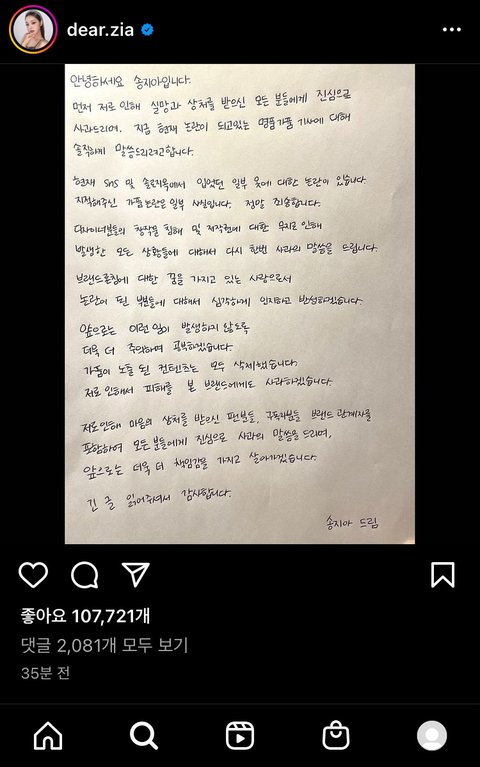 dear.zia
안녕하세요 송지아입니다.
먼저 저로 인해 실망과 상처를 받으신 모든 분들에게 진심으로
사과드리며, 지금 현재 논란이 되고있는 명품가품 기사에 대해
솔직하게 말씀드리려고합니다.
현재 SNS 및 솔로지옥에서 입었던 일부 옷에 대한 논란이 있습니다.
지적해주신 가품논란은 일부 사실입니다. 정말 죄송합니다.
디자이너분들의 창작물 침해 및 저작권에 대한 무지로 인해
발생한 모든 상황들에 대해서 다시 한번 사과의 말씀을 드립니다.
브랜드론칭에 대한 꿈을 가지고 있는 사람으로서
논란이 된 부분들에 대해서 심각하게 인지하고 반성하겠습니다.
앞으로는 이런 일이 발생하지 않도록
더욱 더 주의하며 공부하겠습니다.
가품이 노출 된 컨텐츠는 모두 삭제했습니다.
저로 인해서 피해를 본 브랜드에게도 사과하겠습니다.
저로인해 마음의 상처를 받으신 팬분들, 구독자분들 브랜드 관계자를
포함하여 모든분들에게 진심으로 사과의 말씀을 드리며,
앞으로는 더욱 더 책임감을 가지고 살아가겠습니다.
긴 글 읽어주셔서 감사합니다.
송지아 드림
좋아요 107,721개
댓글 2,081개 모두 보기
35분 전